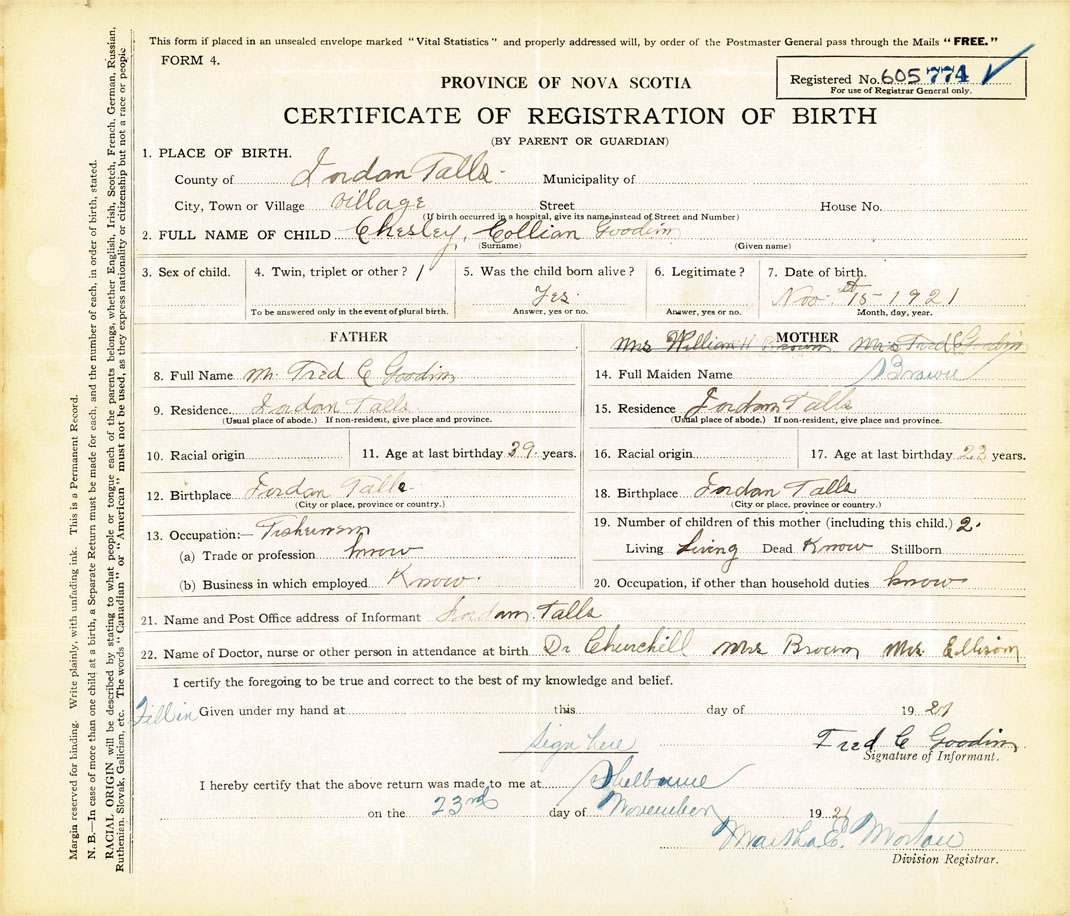 This form if placed in an unsealed envelope marked "Vital Statistics" and properly addressed will, by order of the Postmaster General pass through the Mails "FREE."
FORM 4.
Registered No. 605 774
For use of Registrar General only.
PROVINCE OF NOVA SCOTIA
CERTIFICATE OF REGISTRATION OF BIRTH
(BY PARENT OR GUARDIAN)
1. PLACE OF BIRTH.
County of Jordan Falls Municipality of
City, Town or Village village Street House No.
(If birth occurred in a hospital, give its name instead of Street and Number)
2. FULL NAME OF CHILD Chesley, Collian Goodin
(Surname) (Given name)
3. Sex of child. 4. Twin, triplet or other? 1 5. Was the child born alive? 6. Legitimate? 7. Date of birth.
Yes. Nov. 15 - 1921
To be answered only in the event of plural birth. Answer, yes or no. Answer, yes or no. Month, day, year.
FATHER
8. Full Name Mr Fred C Goodin
9. Residence Jordan Falls
(Usual place of abode.) If non-resident, give place and province.
10. Racial origin 11. Age at last birthday 39 years.
12. Birthplace Jordan Falls
(City or place, province or country.)
13. Occupation:— Fisherman
(a) Trade or profession know
(b) Business in which employed Know.
MOTHER
Mrs William H Brown Mrs Fred C Goodin
14. Full Maiden Name Brown
15. Residence Jordan Falls
(Usual place of abode.) If non-resident, give place and province.
16. Racial origin 17. Age at last birthday 23 years.
18. Birthplace Jordan Falls
(City or place, province or country.)
19. Number of children of this mother (including this child.) 2.
Living Living Dead Know Stillborn
20. Occupation, if other than household duties know
21. Name and Post Office address of Informant Jordan Falls
22. Name of Doctor, nurse or other person in attendance at birth Dr Churchill Mrs Brown Mrs Ellison
I certify the foregoing to be true and correct to the best of my knowledge and belief.
Fill in Given under my hand at this day of 19 21
Sign here Fred C Goodin
Signature of Informant.
I hereby certify that the above return was made to me at Shelburne
on the 23rd day of November 19 21
Martha E. Morton
Division Registrar.
Margin reserved for binding. Write plainly, with unfading ink. This is a Permanent Record.
N. B.—In case of more than one child at a birth, a Separate Return must be made for each, and the number of each, in order of birth, stated.
RACIAL ORIGIN will be described by stating to what people or tongue each of the parents belongs, whether English, Irish, Scotch, French, German, Russian,
Ruthenian, Slovak, Galician, etc. The words "Canadian" or "American" must not be used, as they express nationality or citizenship but not a race or people